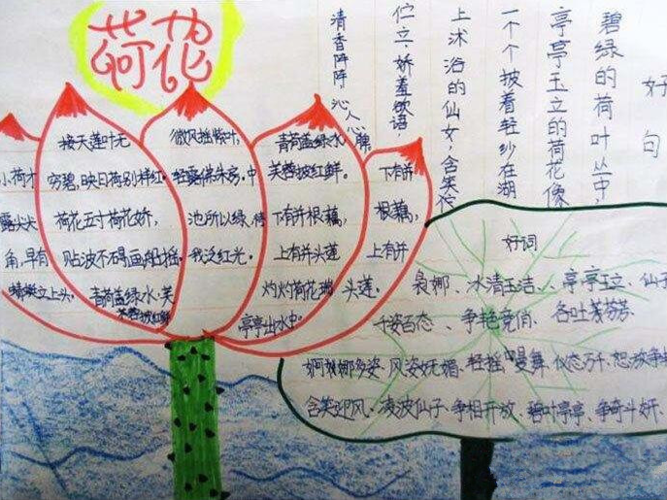 荷花
小荷才
露尖尖
角,早有
蜻蜓立上头。
接天莲叶无
穷碧,映日荷别样红。
荷花五寸荷花娇,
贴波不碍画船摇。
青荷盖绿水,芙
蓉披红鲜
微风摇紫叶,
轻露拂朱房。中
池所以绿,待
我泛红光。
青荷盖绿水
芙蓉披红鲜。
下有并根藕,
上有并头莲
灼灼荷花瑞,
亭亭出水中。
下有并
根藕,
上有并
头莲。
好句
碧绿的荷叶丛中,
亭亭玉立的荷花像
一个个披着轻纱在湖
上沐浴的仙女,含笑
伫立,娇羞欲语
清香阵阵 沁人心脾
好词
袅娜、冰清玉洁、亭亭玉立、仙
千姿百态、争艳竞俏、各吐芬芳
多姿、风姿妩媚、轻摇曼舞、仪态万千、怒放争
含笑迎风、凌波仙子、争相开放、碧叶亭亭、争奇斗妍